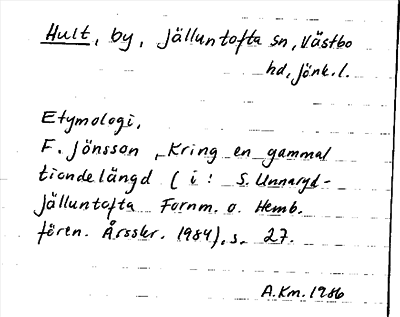 Hult, by, Jälluntofta sn, Västbo
hd, Jönk. l.
Etymologi.
F. Jönsson, Kring en gammal
tiondelängd (i: S. Unnaryd-
Jälluntofta Fornm. o. Hemb.
fören. Årsskr. 1984), s. 27.
A.Km. 1986